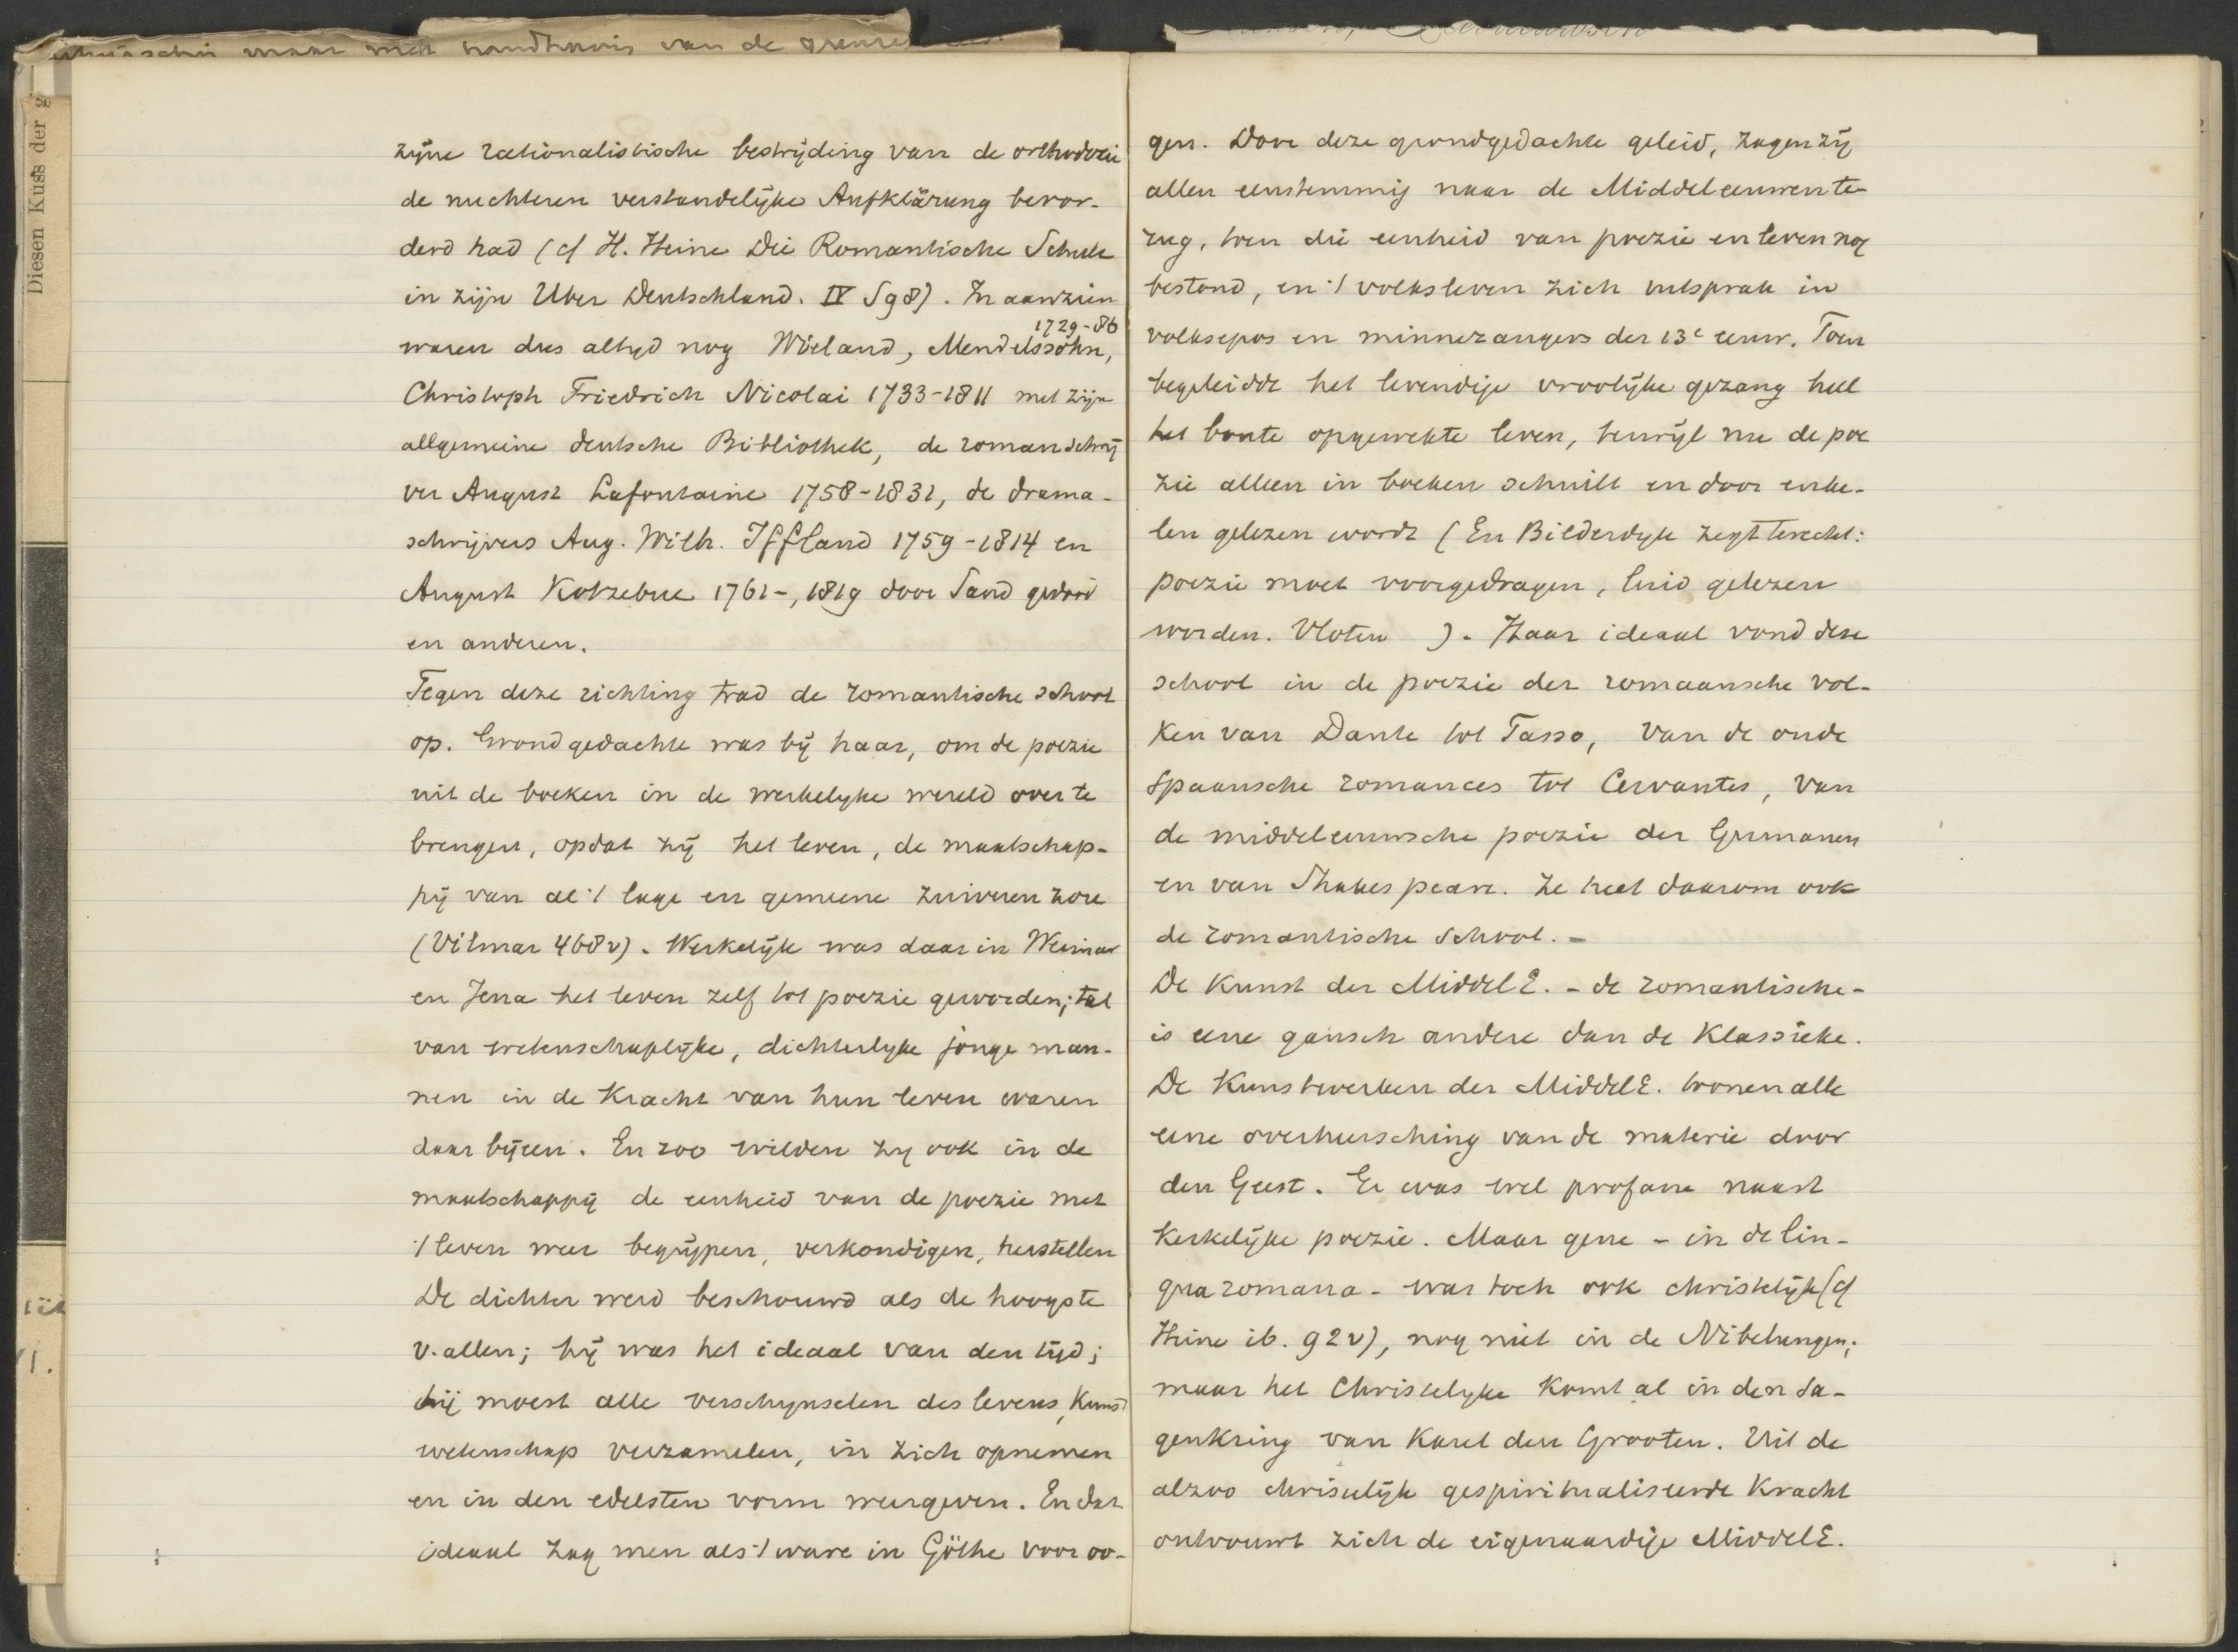 maar met van de
Diesen Kuss der
zijne rationalistische bestrijding van de orthodoxie
de nuchteren verstandelijke Aufklärung bevor-
derd had (cf H. Heine Die Romantische Schule
in zijn Uber Deutschland. IV S98). In aanzien
1729-86
waren dus altyd nog Wieland, Mendelssohn,
Christoph Friedrich Nicolai 1733-1811 met zijn
allgemeine deutsche Bibliothek, de romanschrij
ver August Lafontaine 1758-1831, de drama-
schrijvers Aug. Wilh. Iffland 1759-1814 en
August Kotzebue 1761-, 1819 door Sand gedood
en anderen.
Tegen deze richting trad de romantische school
op. Grondgedachte was bij haar, om de poezie
uit de boeken in de werkelyke wereld over te
brengen, opdat zij het leven, de maatschap-
pij van al 't lage en gemeene zuiveren zou
(Vilmar 468v). Werkelijk was daar in Weimar
en Jena het leven zelf tot poezie geworden; tal
van wetenschaplijke, dichterlyke jonge man-
nen in de Kracht van hun leven waren
daar bijeen. En zoo wilden zy ook in de
maatschappij de eenheid van de poezie met
't leven weer begrijpen, verkondigen, herstellen
De dichter werd beschouwd als de hoogste
v. allen; hij was het ideaal van den tijd;
hij moest alle verschynselen des levens, Kunst
wetenschap verzamelen, in zich opnemen
en in den edelsten vorm weergeven. En dat
ideaal zag men als 't ware in Göthe voor oo-
gen. Door deze grondgedachte geleid, zagen zij
allen eenstemmig naar de Middeleeuwen te-
rug, toen die eenheid van poezie en leven nog
bestond, en 't volksleven zich uitsprak in
volksepos en minnezangers der 13e eeuw. Toen
begeleidde het levendige vroolijke gezang heel
het bonte opgewekte leven, terwijl nu de poe
zie alleen in boeken schuilt en door enke-
len gelezen wordt (En Bilderdyk zegt terecht:
poezie moet voorgedragen, luid gelezen
worden. Vloten ). Haar ideaal vond deze
school in de poezie der romaansche vol-
ken van Dante tot Tasso, van de oude
Spaansche romances tot Cervantes, van
de middeleeuwsche poezie der Germanen
en van Shakespeare. Ze heet daarom ook
de romantische School. -
De Kunst der MiddelE. - de romantische -
is eene gansch andere dan de Klassieke.
De Kunstwerken der MiddelE. toonen alle
eene overheersching van de materie door
den Geest. Er was wel profane naast
Kerkelijke poezie. Maar gene - in de lin-
gua romana - was toch ook christelijk (cf
Heine ib. 92v), nog niet in de Nibelungen;
maar het Christelyke Komt al in den Sa-
genkring van Karel den Grooten. Uit de
alzoo christelijk gespiritualiseerde Kracht
ontvouwt zich de eigenaardige MiddelE.